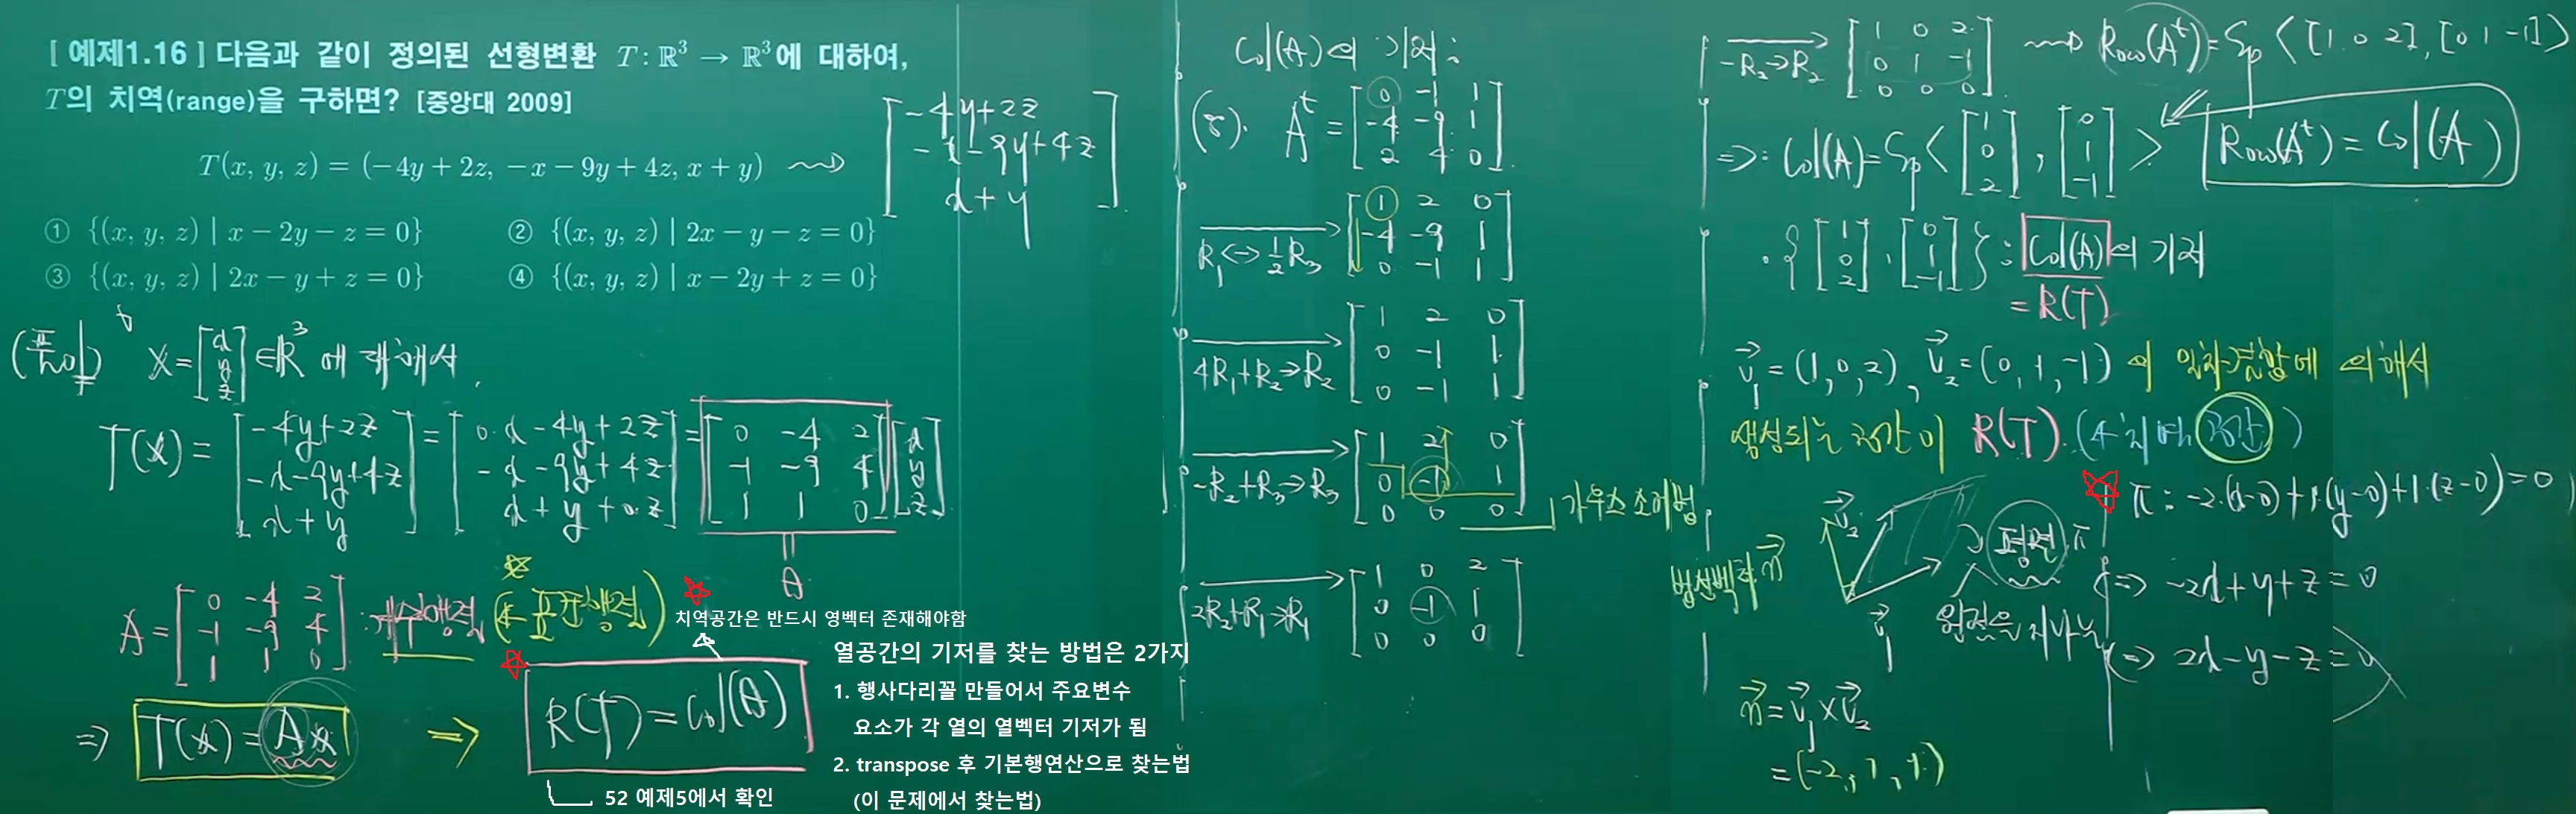 [ 예제1.16 ] 다음과 같이 정의된 선형변환 T : ℝ³ → ℝ³에 대하여,
T의 치역(range)을 구하면? [중앙대 2009]
T(x, y, z) = (−4y + 2z, −x − 9y + 4z, x + y) ⇝ [−4y+2z; −x−9y+4z; x+y]
① {(x, y, z) | x − 2y − z = 0} ② {(x, y, z) | 2x − y − z = 0}
③ {(x, y, z) | 2x − y + z = 0} ④ {(x, y, z) | x − 2y + z = 0}
(풀이) ∀ X = [x; y; z] ∈ ℝ³ 에 대해서,
T(X) = [−4y+2z; −x−9y+4z; x+y] = [0·x−4y+2z; −x−9y+4z; x+y+0·z] = [0 −4 2; −1 −9 4; 1 1 0][x; y; z]
A
A = [0 −4 2; −1 −9 4; 1 1 0] : 계수행렬 (← 표준행렬)
치역공간은 반드시 영벡터 존재해야함
⇒ T(X) = AX ⇒ R(T) = Col(A)
52 예제5에서 확인
열공간의 기저를 찾는 방법은 2가지
1. 행사다리꼴 만들어서 주요변수
요소가 각 열의 열벡터 기저가 됨
2. transpose 후 기본행연산으로 찾는법
(이 문제에서 찾는법)
Col(A)의 기저:
Aᵗ = [0 −1 1; −4 −9 1; 2 4 0]
R₁↔½R₃ [1 2 0; −4 −9 1; 0 −1 1]
4R₁+R₂→R₂ [1 2 0; 0 −1 1; 0 −1 1]
−R₂+R₃→R₃ [1 2 0; 0 −1 1; 0 0 0] 가우스 소거법
2R₂+R₁→R₁ [1 0 2; 0 −1 1; 0 0 0]
−R₂→R₂ [1 0 2; 0 1 −1; 0 0 0] ⇝ Row(Aᵗ) = Sp⟨[1 0 2], [0 1 −1]⟩
⇒: Col(A) = Sp⟨[1; 0; 2], [0; 1; −1]⟩ Row(Aᵗ) = Col(A)
·{[1; 0; 2], [0; 1; −1]} : Col(A)의 기저
= R(T)
v₁ = (1, 0, 2), v₂ = (0, 1, −1) 의 일차결합에 의해서
생성되는 공간이 R(T). (← 치역공간)
v₂
v₁
법선벡터 n
평면 π
원점을 지나는
n = v₁ × v₂
= (−2, 1, 1)
π : −2·(x−0)+1·(y−0)+1·(z−0)=0
⇔ −2x+y+z=0
⇔ 2x−y−z=0